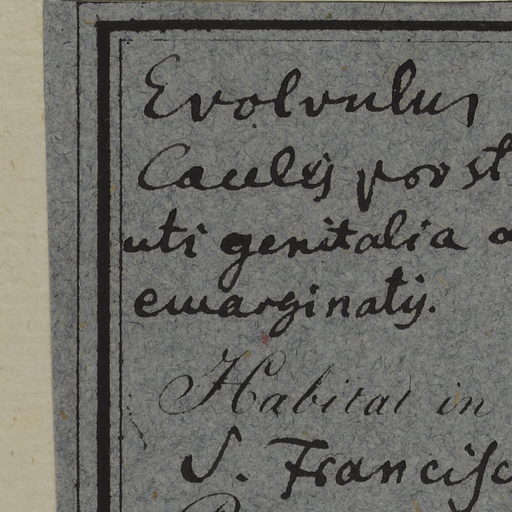 Evolvulus
Caulis prost
uti genitalia a
emarginatis.
Habitat in
S. Francisc